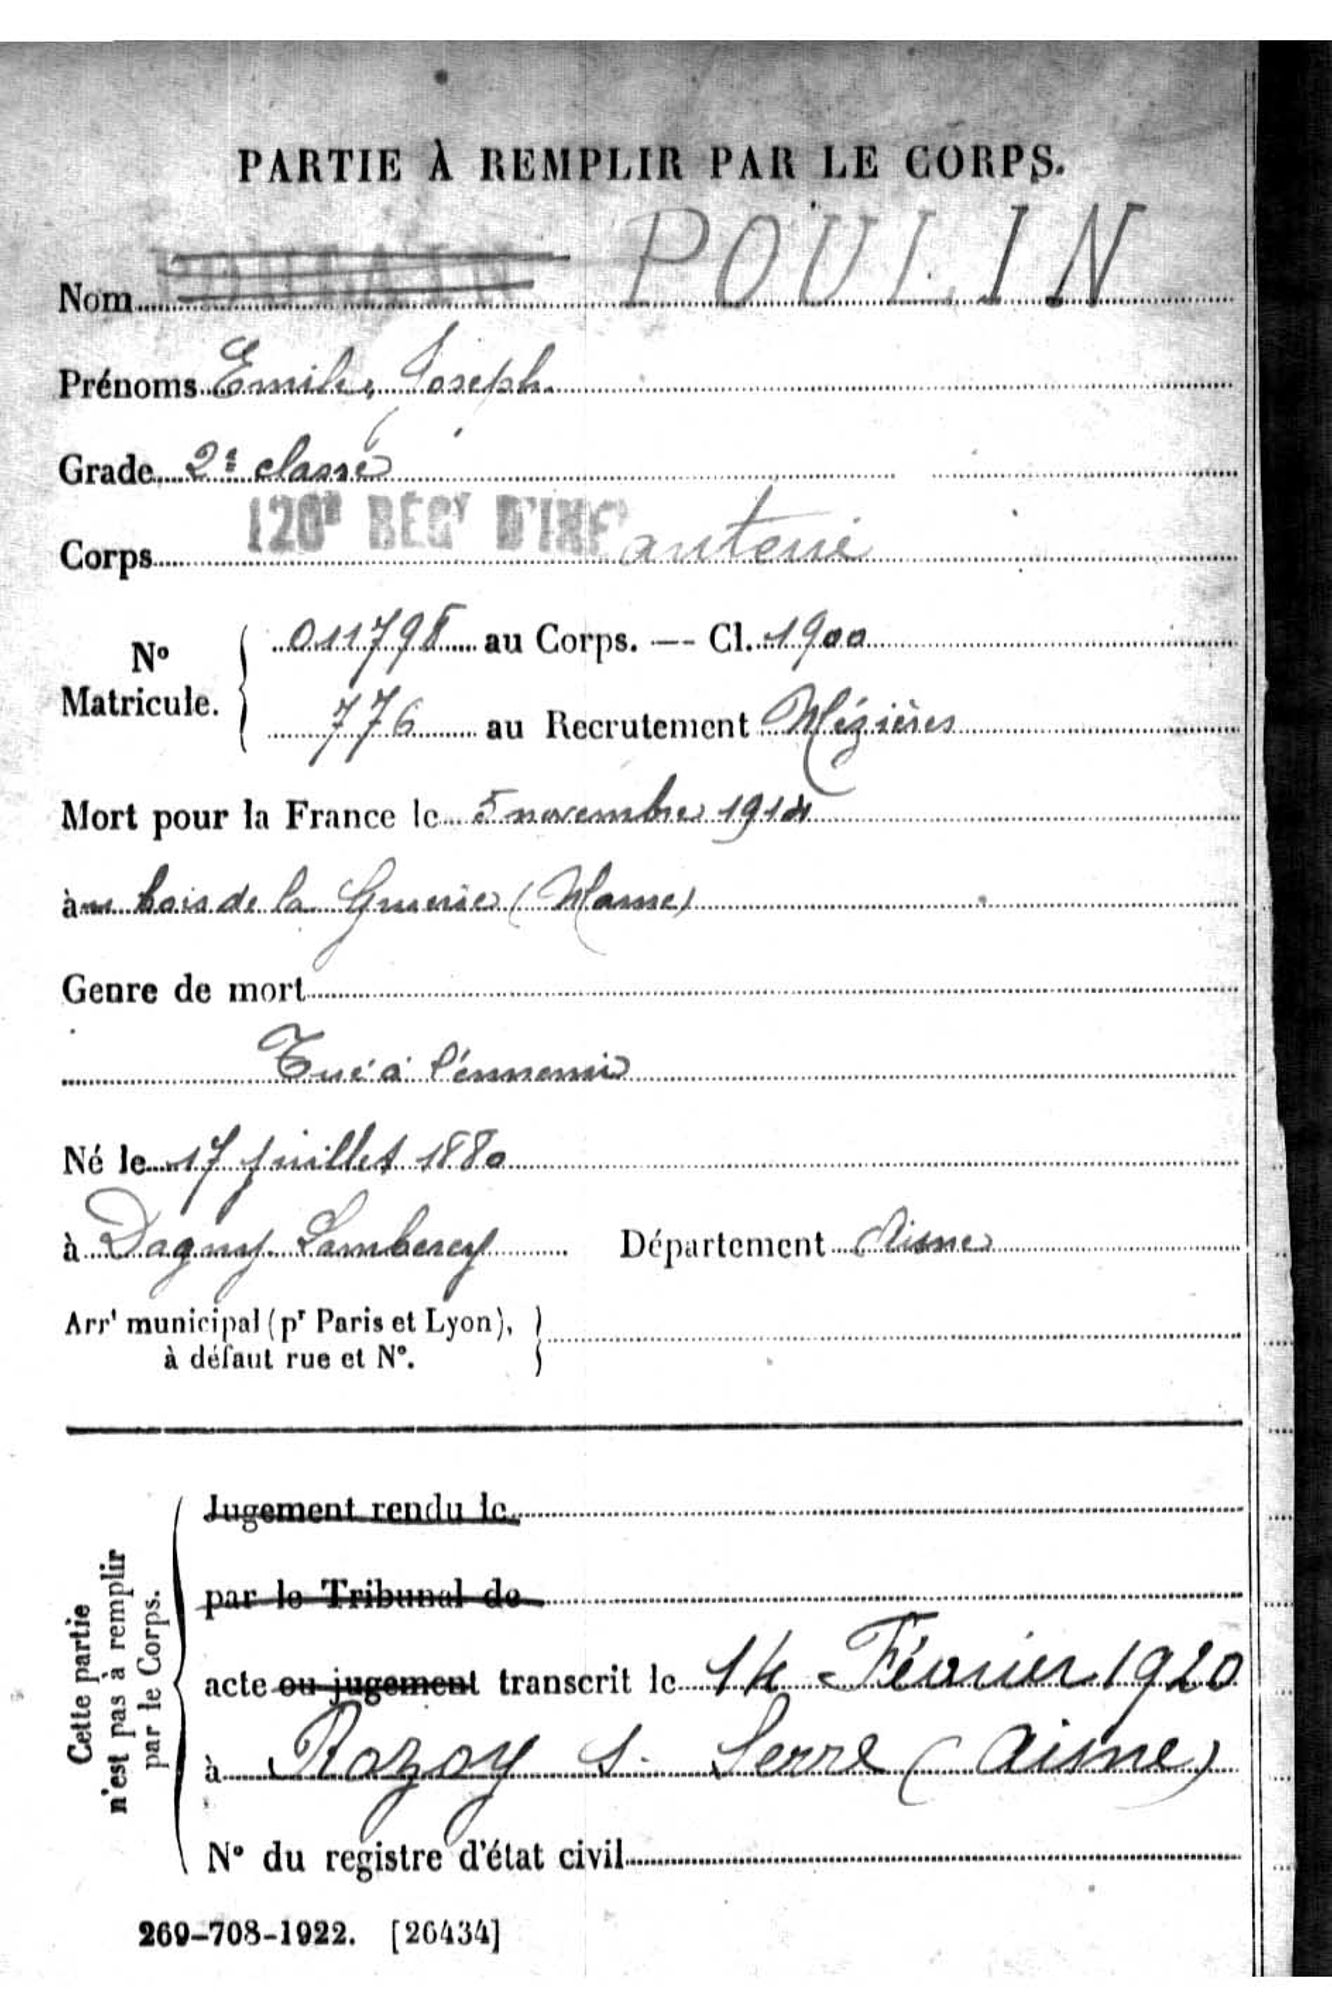 PARTIE À REMPLIR PAR LE CORPS.
Nom POULIN
Prénoms Emile, Joseph
Grade 2e classe
Corps 120e RÉGt D'INFanterie
No Matricule. 011798 au Corps. — Cl. 1900
776 au Recrutement Mézières
Mort pour la France le 5 novembre 1914
à au bois de la Grurie (Marne)
Genre de mort
Tué à l'ennemi
Né le 17 juillet 1880
à Dagny Lambercy Département Aisne
Arrt municipal (pr Paris et Lyon),
à défaut rue et N°.
Cette partie
n'est pas à remplir
par le Corps.
Jugement rendu le
par le Tribunal de
acte ou jugement transcrit le 14 Février 1920
à Rozoy s. Serre (Aisne)
N° du registre d'état civil
269-708-1922. [26434]